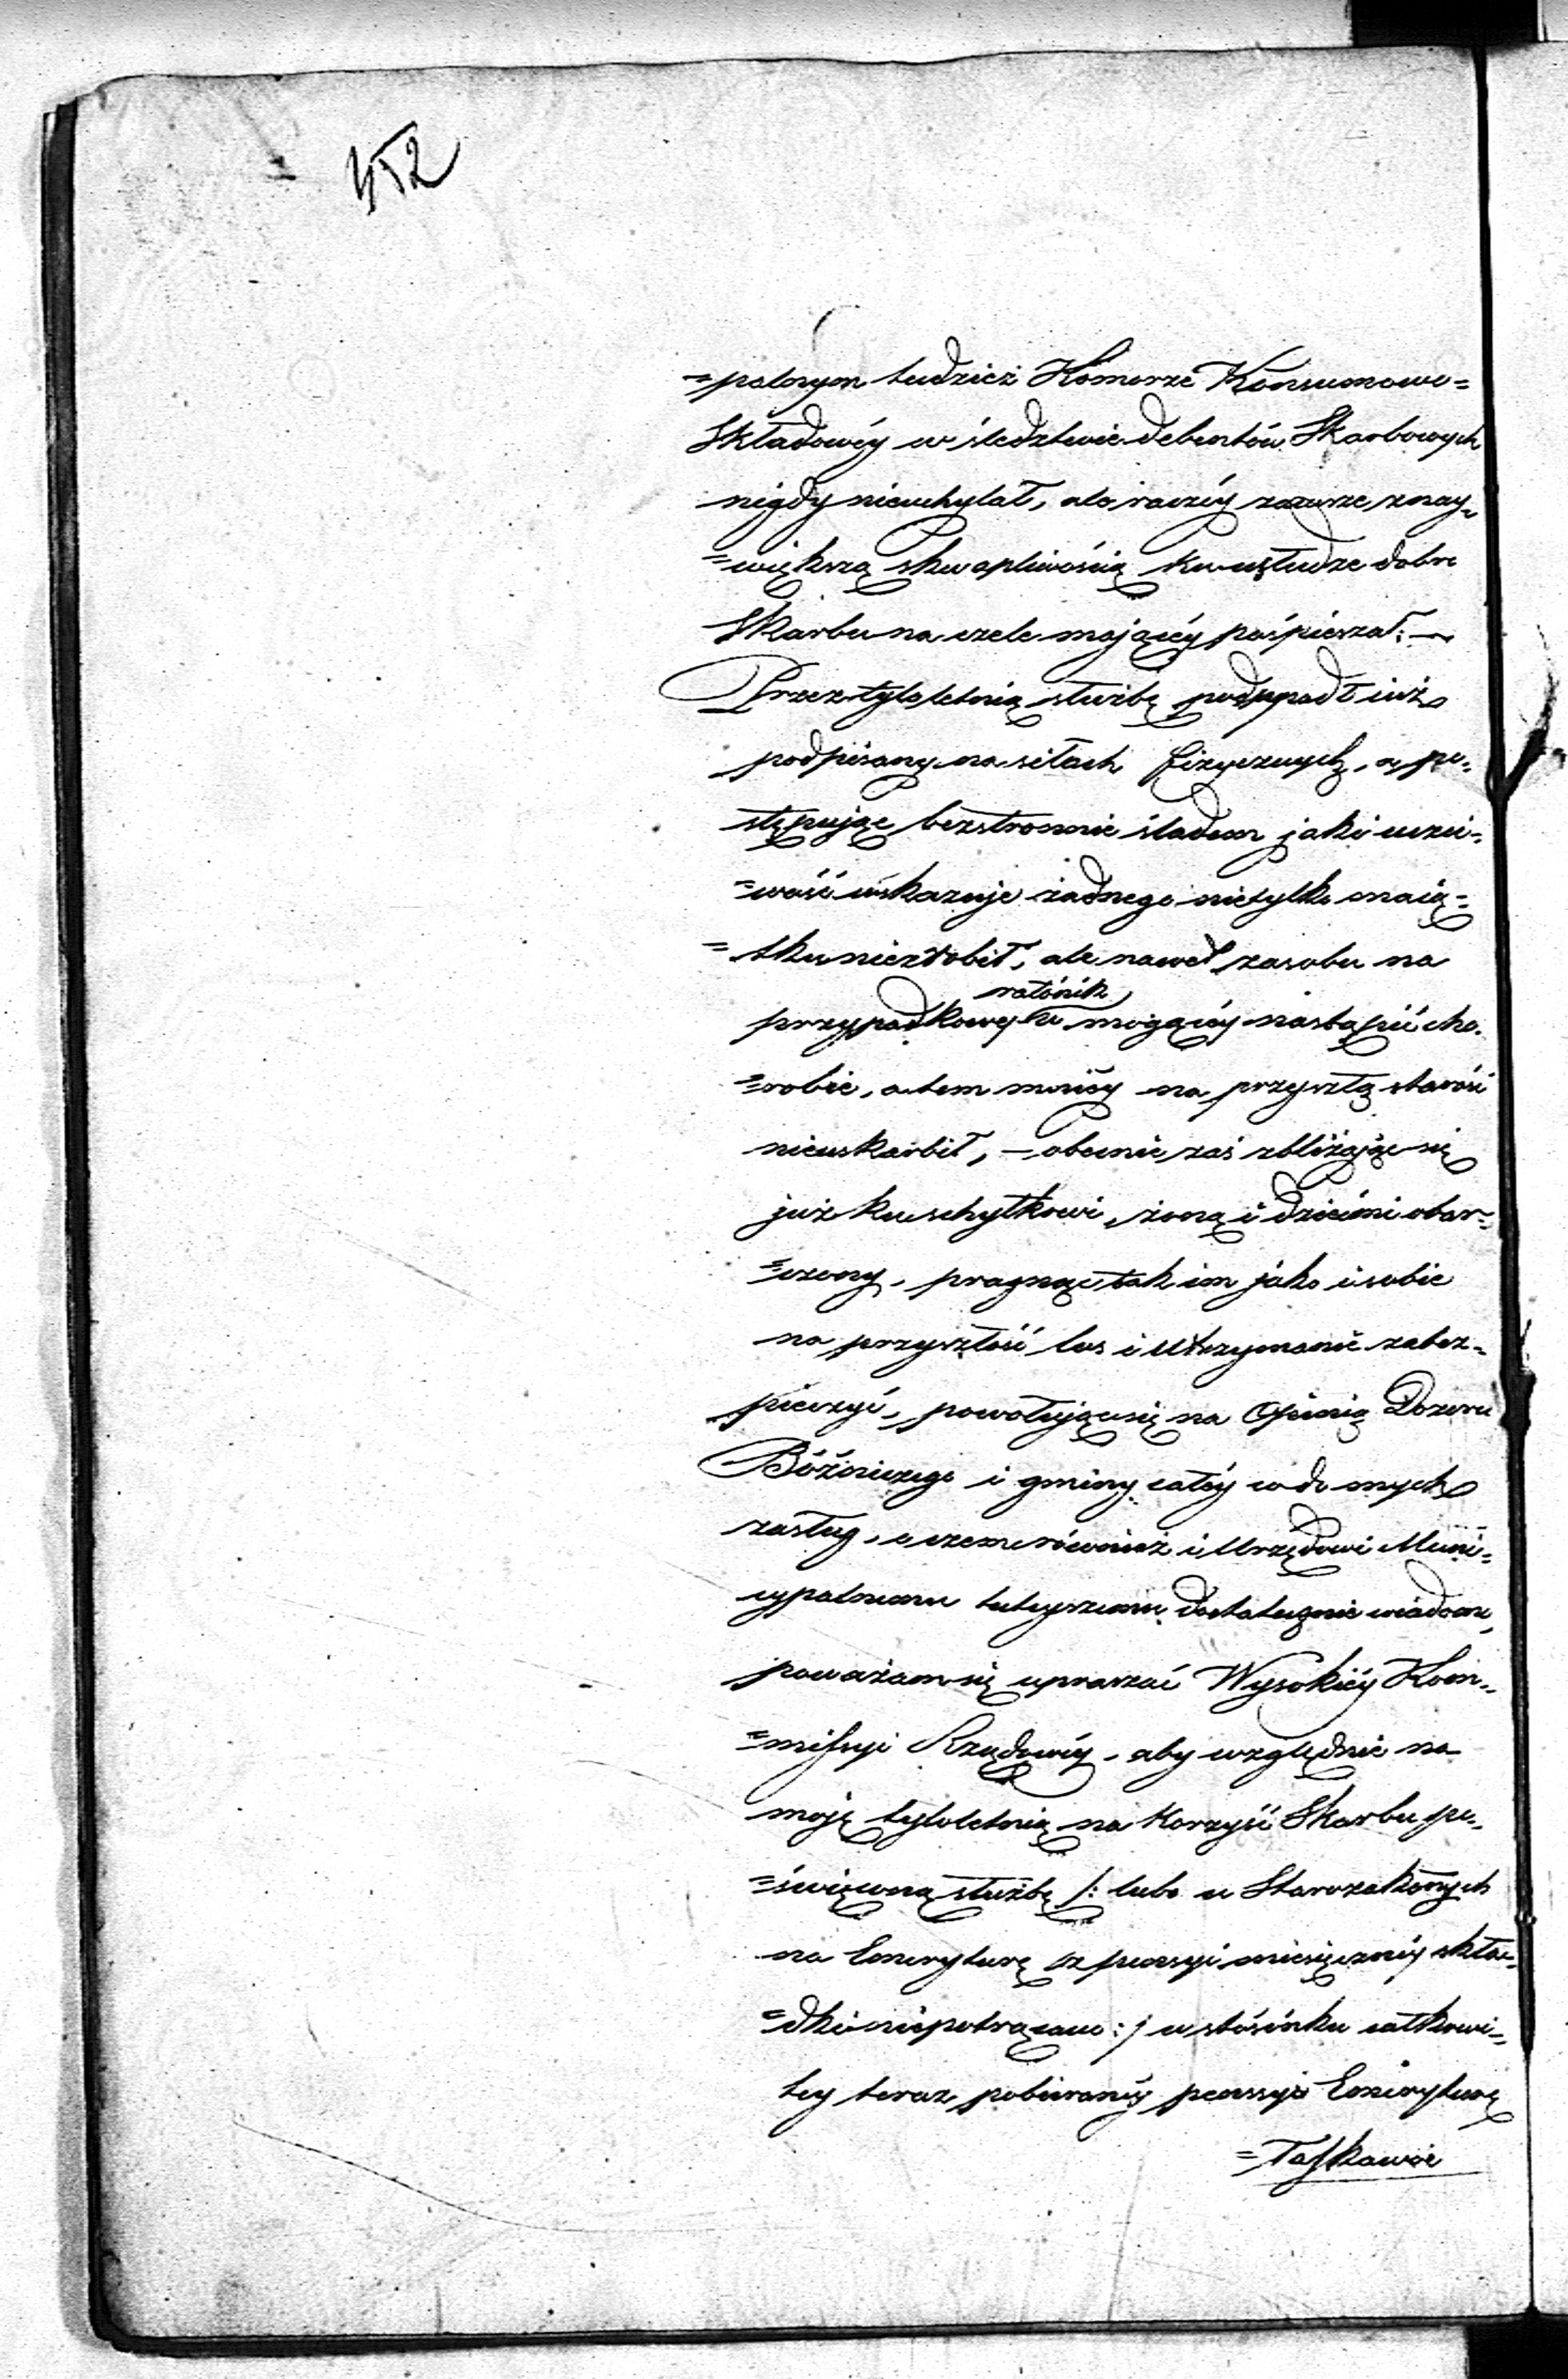 452
=palnym tudzież Komorze Konsumowo=
Składowéy w śledztwie debentów Skarbowych
nigdy nieuchylał, ale raczéy zawsze z nay=
=większą skwapliwością ku usłudze dobro
Skarbu na czele mającéy pośpieszał: —
Przez tyloletnią służbę podupadł iuż
podpisany na siłach fizycznych, a po=
stępując bezstronnie śladem jaki uczci=
=wość wskazuje żadnego nietylko maią=
=tku niezrobił, ale nawet zasobu na
ratónik
przypadkowey w mogącéy nastąpić cho=
=robie, a tem mniéy na przyszłą starość
nieuskarbił, — obecnie zaś zbliżając się
już ku schyłkowi, żoną i dziećmi obar=
=czony, pragnąc tak im jako i sobie
na przyszłość los i utrzymanie zabez=
pieczyć, powołując się na Opinią Dozoru
Bóżniczego i gminy całéy co do mych
zasług, o czem również i Urzędowi Muni=
cypalnemu tuteyszemu dostatecznie wiadomo,
poważam się upraszać Wysokiéy Kom=
=missyi Rządowéy, aby względnie na
moję tyloletnią na korzyść Skarbu po=
=święconą służbę /: lubo u Starozakonnych
na Emeryturę z pensyi miesięcznéy skła=
=dki niepotrącano :/ w stósónku całkowi=
tey teraz pobieranéy penssyi Emeryturę
=Łaskawie